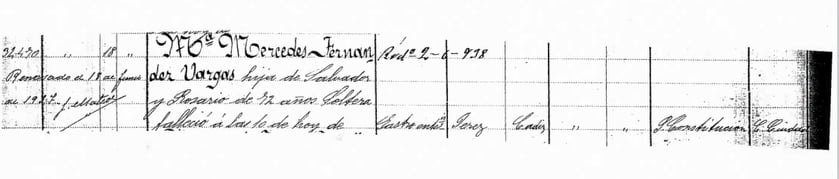 32430 " 18 "
Mª Mercedes Fernan-
dez Vargas hija de Salvador
y Rosario de 72 años Soltera
falleció á las 10 de hoy de
Renovado el 18 de Junio
de 1937
Rdº 2-6-938
Gastro entis Perez Cadiz " " P. Constitucion C. Ciudad